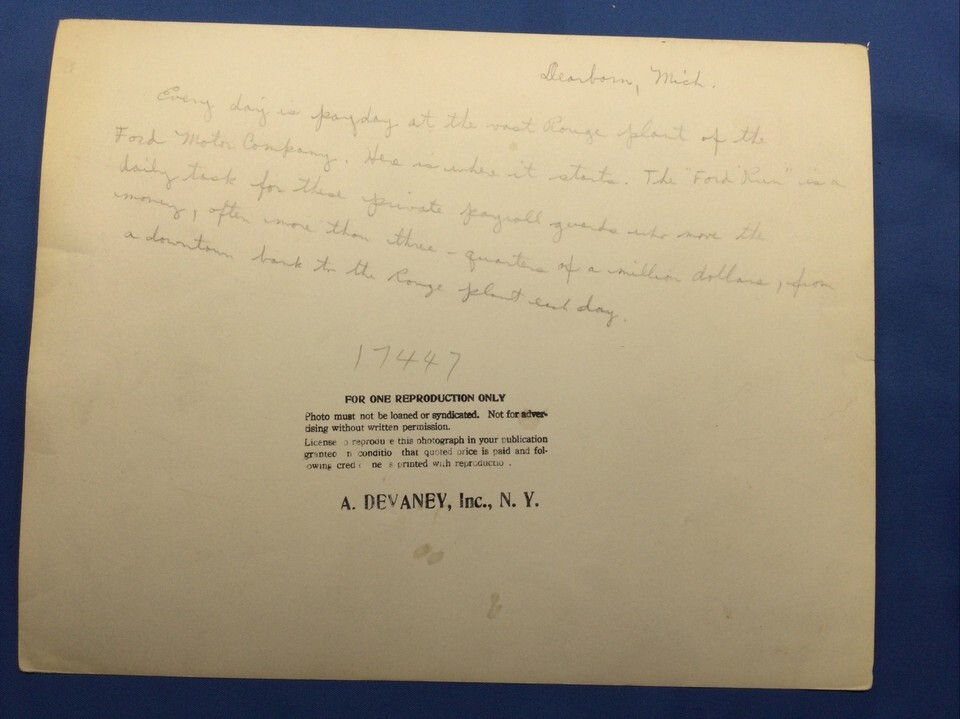 Dearborn, Mich.
Every day is payday at the vast Rouge plant of the
Ford Motor Company. Here is where it starts. The "Ford Run" is a
daily task for these private payroll guards who move the
money, often more than three-quarters of a million dollars, from
a downtown bank to the Rouge plant each day.
17447
FOR ONE REPRODUCTION ONLY
Photo must not be loaned or syndicated. Not for adver-
tising without written permission.
License o reprodu e this photograph in your publication
granted n conditio that quoted price is paid and fol-
owing cred ne s printed with reproductio .
A. DEVANEY, Inc., N. Y.